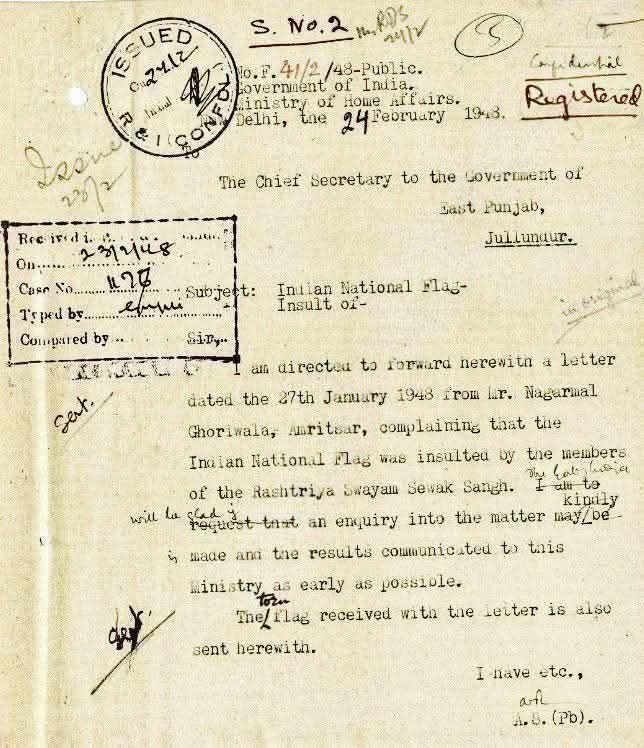 S. No. 2
24/2
Confidential
Registered
ISSUED
On 24/2
Initial
R & I (CONFDL)
No.F. 41/2/48-Public.
Government of India.
Ministry of Home Affairs.
Delhi, the 24 February 1948.
Issue
23/2
The Chief Secretary to the Government of
East Punjab,
Jullundur.
Received i
On 23/2/48
Case No.
Typed by
Compared by
Subject: Indian National Flag-
Insult of-
in original
Sir,
I am directed to forward herewith a letter
dated the 27th January 1948 from Mr. Nagarmal
Ghoriwala, Amritsar, complaining that the
Indian National Flag was insulted by the members
of the Rashtriya Swayam Sewak Sangh. The Govt. I am to
will be glad if kindly
request that an enquiry into the matter may/be
is made and the results communicated to this
Ministry as early as possible.
torn
The flag received with the letter is also
sent herewith.
I have etc.,
A.S.(Pb).